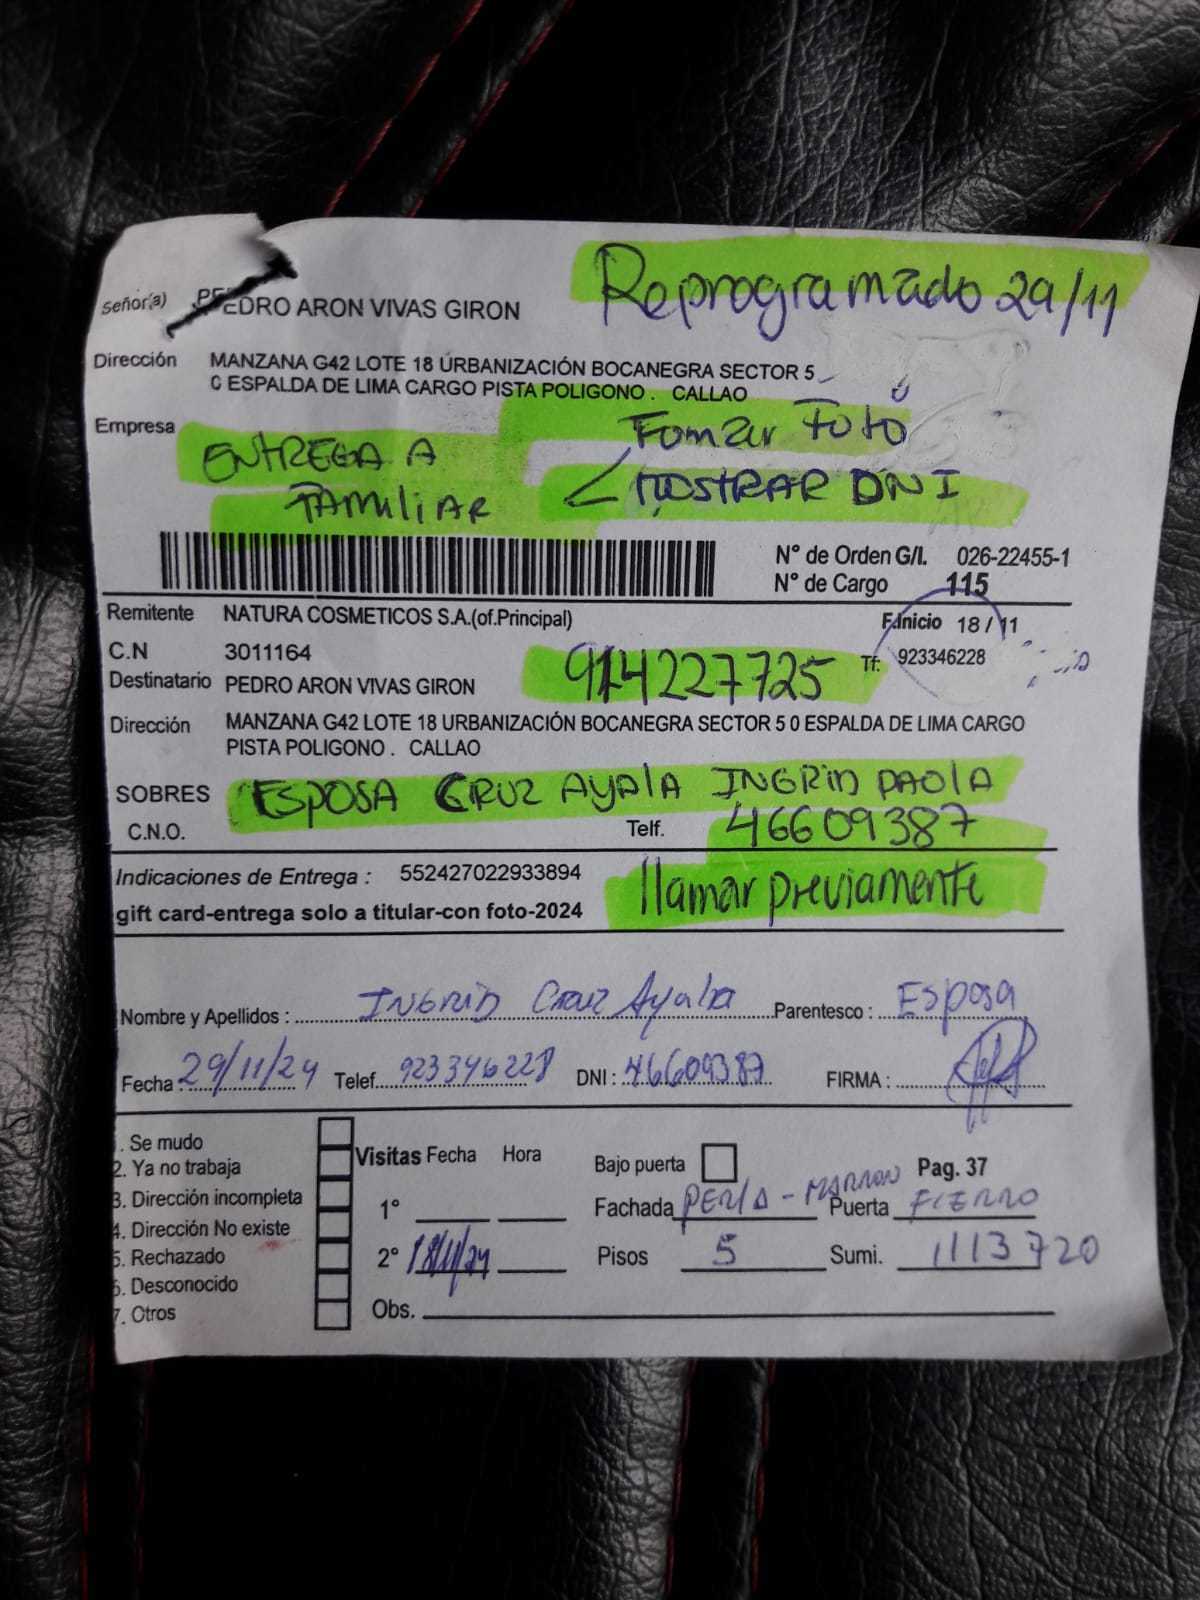 Reprogramado 29/11
Señor(a) PEDRO ARON VIVAS GIRON
Dirección MANZANA G42 LOTE 18 URBANIZACIÓN BOCANEGRA SECTOR 5
0 ESPALDA DE LIMA CARGO PISTA POLIGONO . CALLAO
Empresa
ENTREGA A Tomar Foto
FAMILIAR MOSTRAR DNI
N° de Orden G/I. 026-22455-1
N° de Cargo 115
Remitente NATURA COSMETICOS S.A.(of.Principal) F.Inicio 18 / 11
C.N 3011164 914227725 Tf: 923346228
Destinatario PEDRO ARON VIVAS GIRON
Dirección MANZANA G42 LOTE 18 URBANIZACIÓN BOCANEGRA SECTOR 5 0 ESPALDA DE LIMA CARGO
PISTA POLIGONO . CALLAO
SOBRES ESPOSA CRUZ AYALA INGRID PAOLA
C.N.O. Telf. 46609387
Indicaciones de Entrega : 552427022933894 llamar previamente
gift card-entrega solo a titular-con foto-2024
Nombre y Apellidos : INGRID Cruz Ayala Parentesco : Esposa
Fecha : 29/11/24 Telef. 923346228 DNI : 46609387 FIRMA :
1. Se mudo
2. Ya no trabaja Visitas Fecha Hora Bajo puerta Pag. 37
3. Dirección incompleta 1° Fachada PERLA - MARRON Puerta FIERRO
4. Dirección No existe
5. Rechazado 2° 18/11/24 Pisos 5 Sumi. 1113720
6. Desconocido
7. Otros Obs.